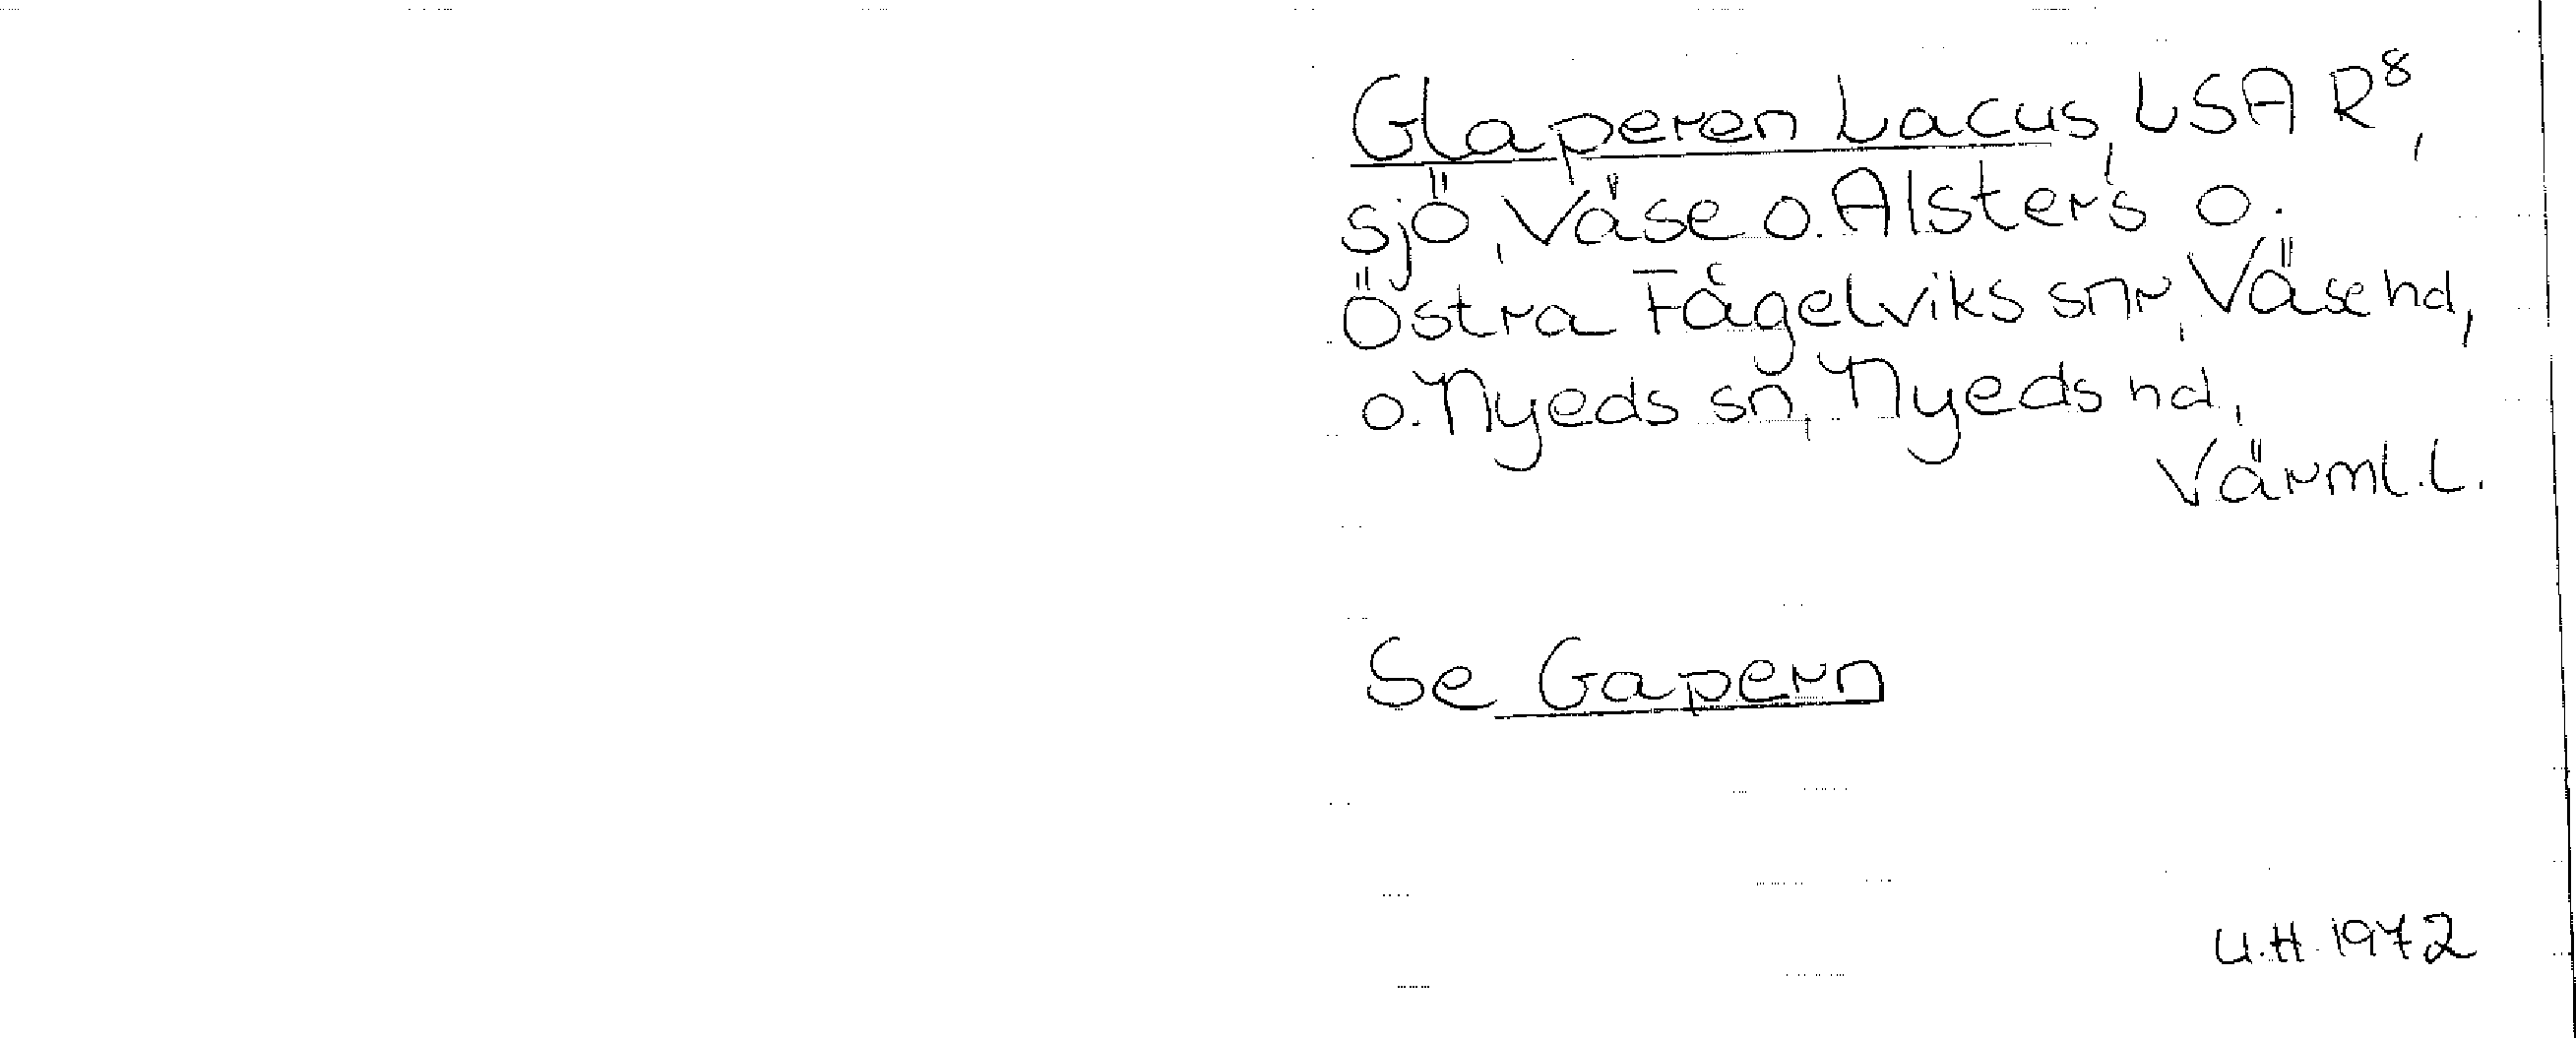 Glaperen Lacus, LSA R⁸,
sjö, Väse o. Alsters o.
Östra Fågelviks snr, Väse hd,
o. Nyeds sn, Nyeds hd,
Värml. l.
Se Gapern
U.H. 1972